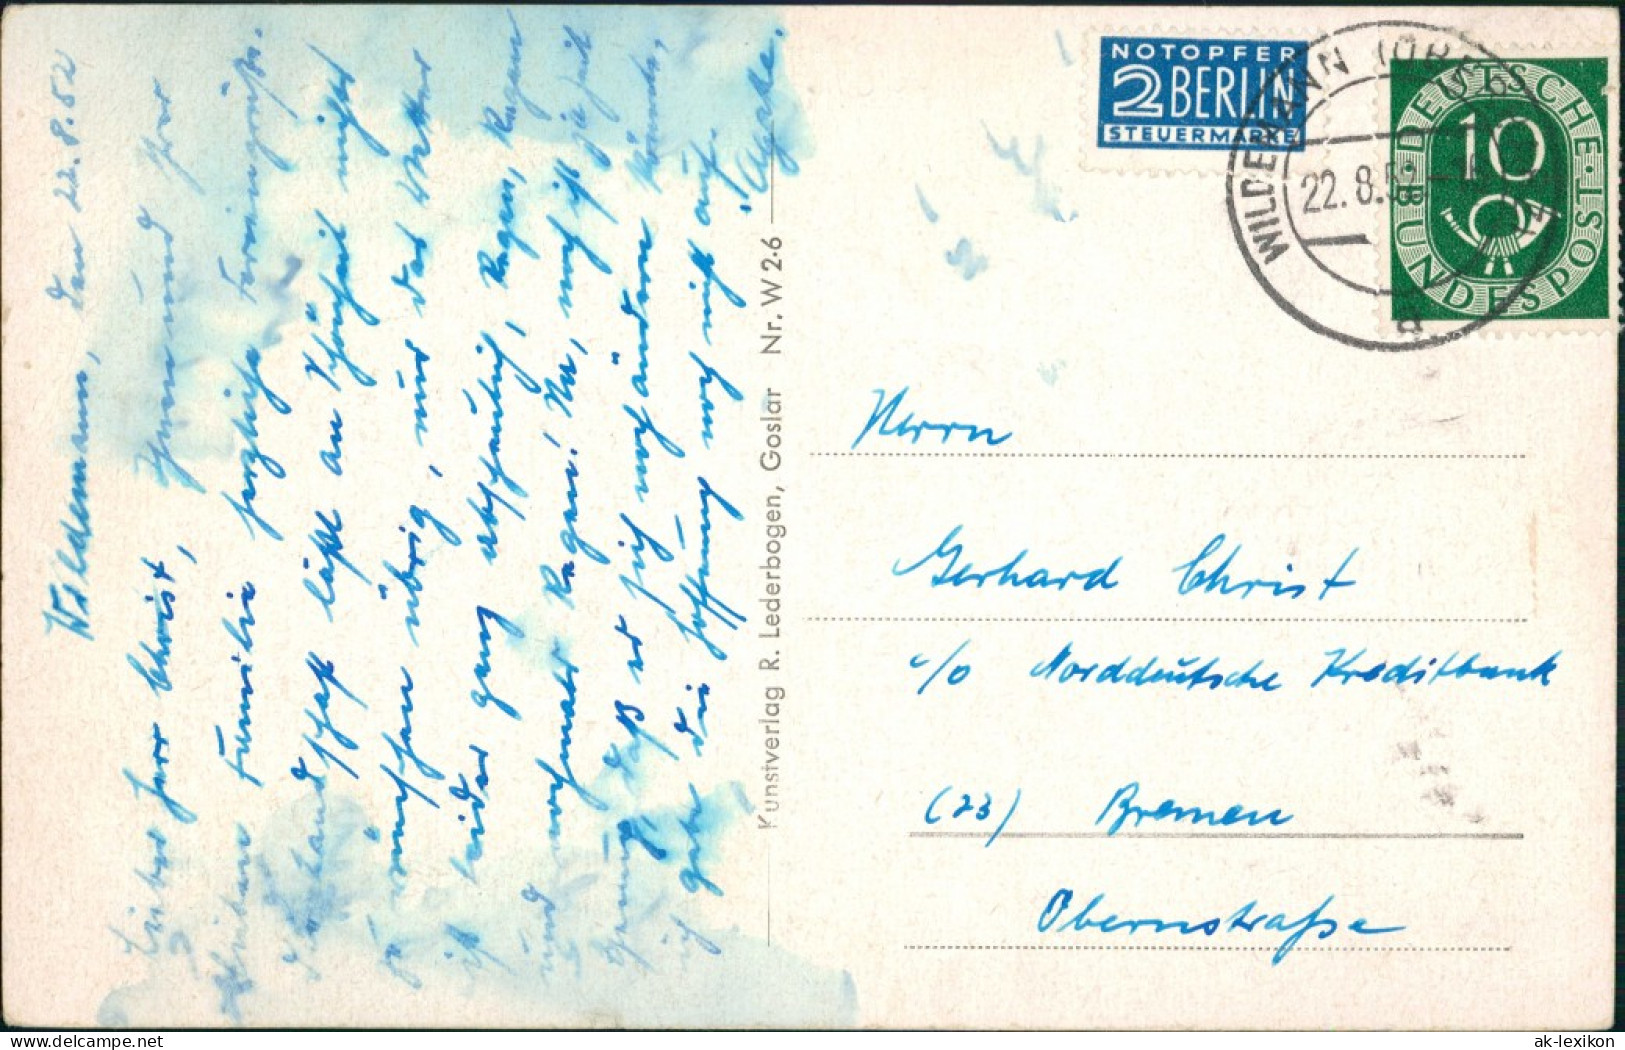 Wildemann, den 22.8.52
Lieber Herr Christ,
Ihnen und Ihrer
Familie herzliche Feriengrüße.
Die Landschaft läßt an Schönheit nichts
zu wünschen übrig, nur das Wetter
ist leider ganz abscheulich, Regen, Regen
und nochmals Regen! Na, noch ist ja Zeit
genug, daß er sich noch ändern könnte,
ich gebe die Hoffnung noch nicht auf.
Kunstverlag R. Lederbogen, Goslar Nr. W 2·6
NOTOPFER
2 BERLIN
STEUERMARKE
WILDEMANN
22.8.52
a
DEUTSCHE
BUNDESPOST
10
Herrn
Gerhard Christ
c/o Norddeutsche Kreditbank
(23) Bremen
Obernstraße
ak-lexikon